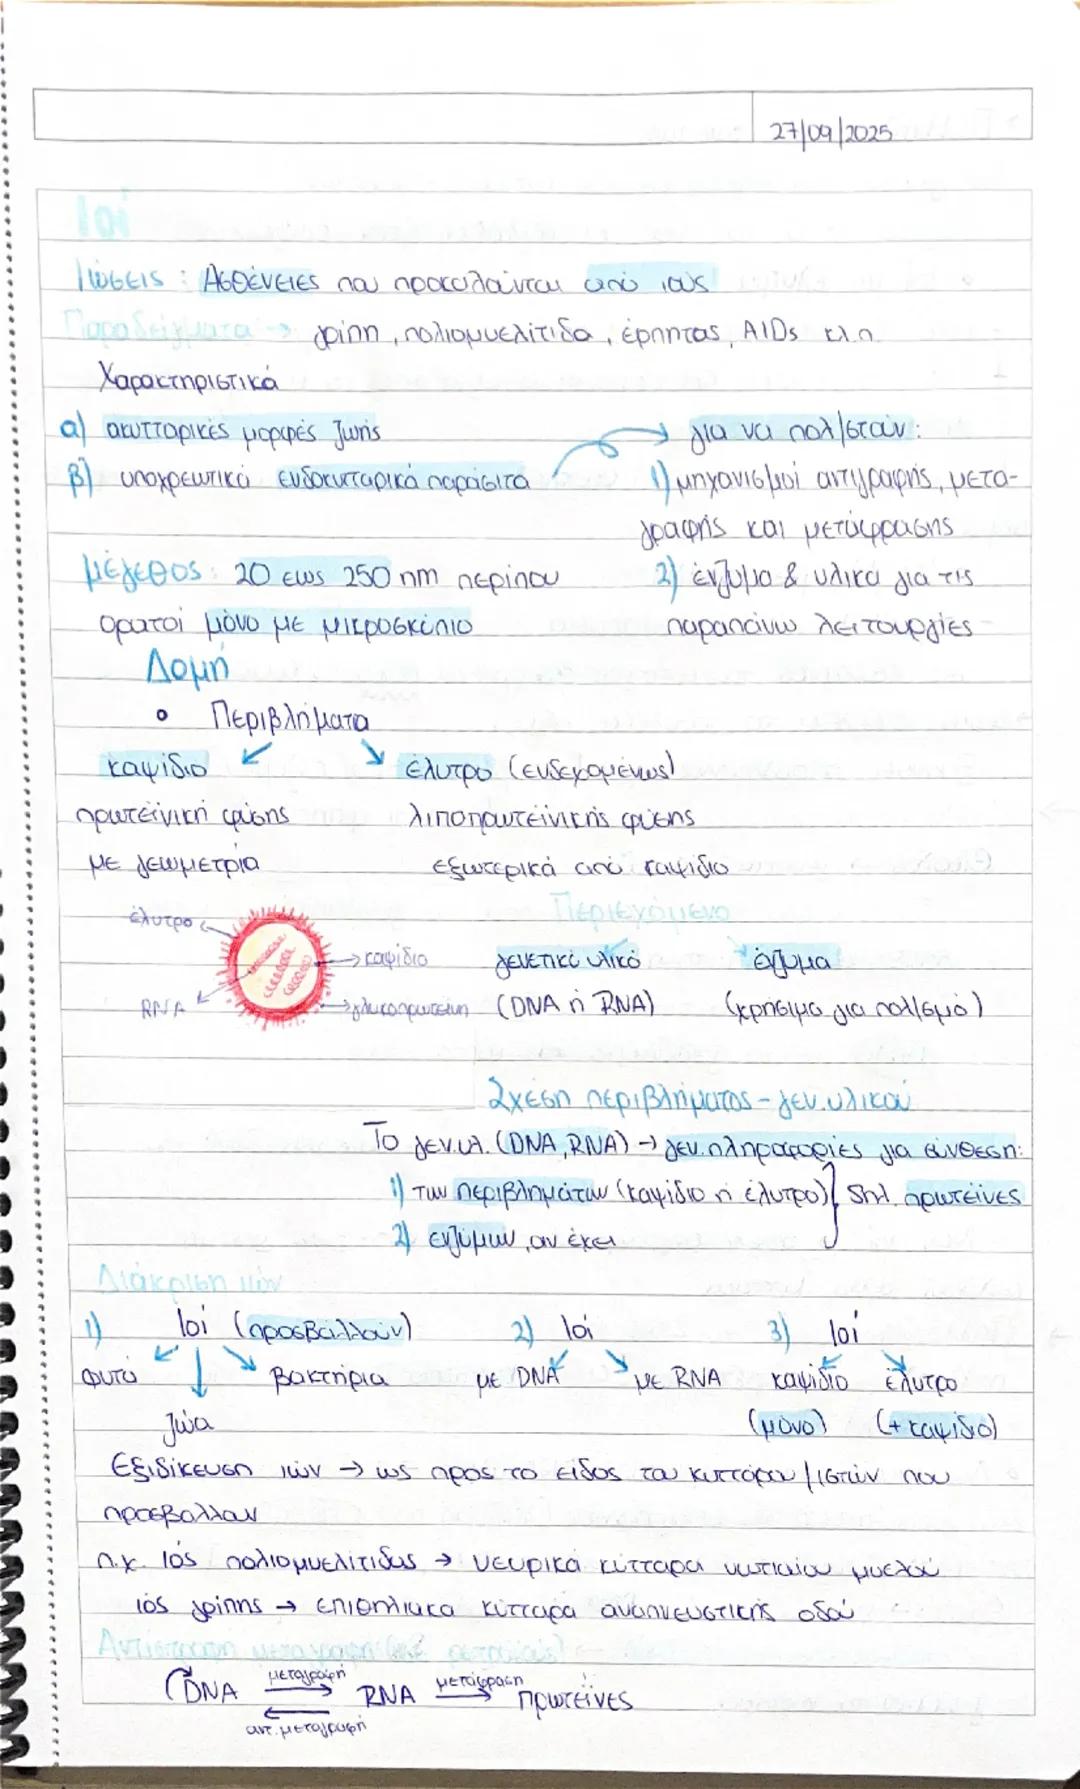 27/09/2025
Ιοί
Ιώσεις : Ασθένειες που προκαλούνται από ιούς
Παραδείγματα → γρίπη, πολιομυελίτιδα, έρπητας, AIDs κλπ.
Χαρακτηριστικά
α) ακυτταρικές μορφές ζωής
β) υποχρεωτικά ενδοκυτταρικά παράσιτα
→ για να πολ/στούν:
1) μηχανισμοί αντιγραφής, μετα-
γραφής και μετάφρασης
2) ένζυμα & υλικά για τις
παραπάνω λειτουργίες
Μέγεθος: 20 εως 250 nm περίπου
ορατοί μόνο με μικροσκόπιο
Δομή
• Περιβλήματα
καψίδιο
πρωτεϊνική φύσης
με γεωμετρία
έλυτρο (ενδεχομένως)
λιποπρωτεϊνικής φύσης
εξωτερικά από καψίδιο
έλυτρο
καψίδιο
RNA
γλυκοπρωτεΐνη
Περιεχόμενο
γενετικό υλικό
(DNA ή RNA)
ένζυμα
(χρήσιμα για πολ/σμό)
Σχέση περιβλήματος - γεν. υλικού
Το γεν.υλ. (DNA, RNA) → γεν. πληροφορίες για σύνθεση:
1) των περιβλημάτων (καψίδιο ή έλυτρο) } δηλ. πρωτεΐνες
2) ενζύμων, αν έχει
Διάκριση ιών
1) Ιοί (προσβάλλουν)
φυτά
ζώα
βακτήρια
2) Ιοί
με DNA
με RNA
3) Ιοί
καψίδιο
(μόνο)
έλυτρο
(+ καψίδιο)
Εξιδίκευση ιών → ως προς το είδος του κυττάρου/ιστών που
προσβάλλουν
π.χ. Ιός πολιομυελίτιδας → νευρικά κύτταρα νωτιαίου μυελού
ιός γρίπης → επιθηλιακά κύτταρα αναπνευστικής οδού
Αντίστροφη μεταγραφή
DNA μεταγραφή → RNA μετάφραση → πρωτεΐνες
αντ. μεταγραφή